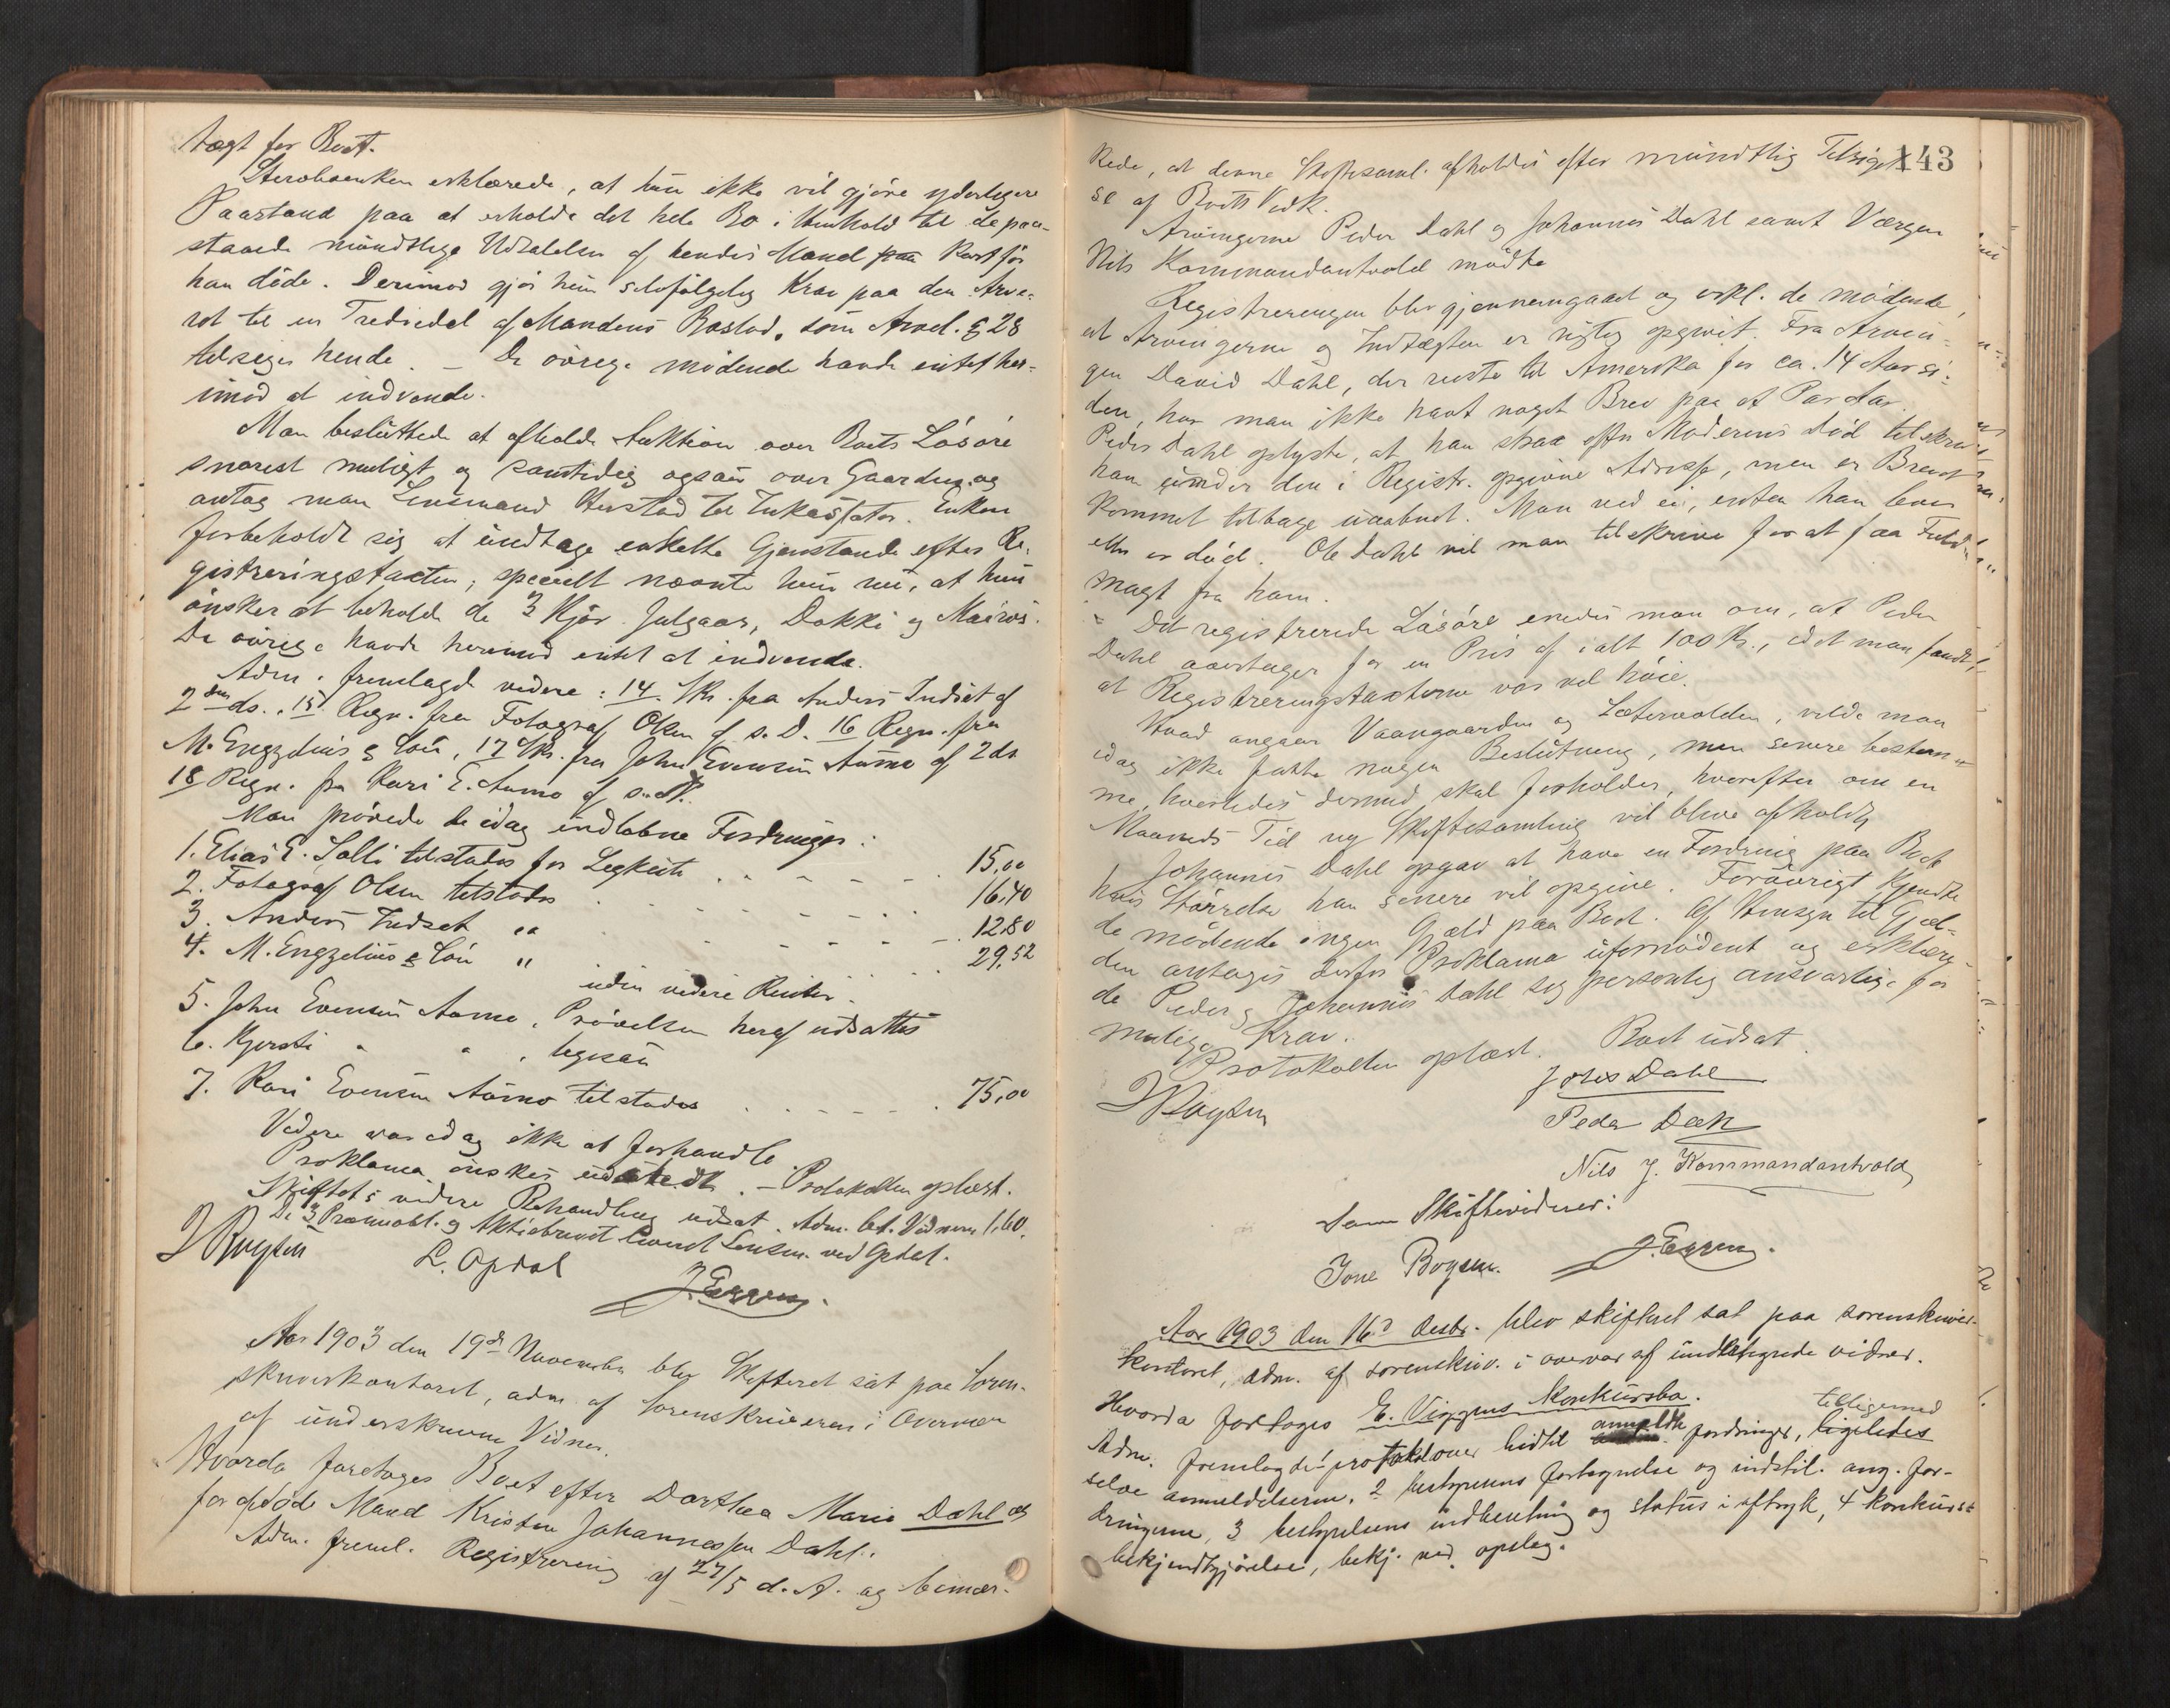 tægt for Boet.
Stervboenken erklærede, at hun ikke vil gjöre yderligere
Paastand paa at erholde det hele Bo i Henhold til de paa-
staaede mundtlige Udtalelser af hendes Mand kort før
han døde. Derimod gjör hun selvfølgelig Krav paa den Arve-
rot til en Trediedel af Mandens Boslod, som Arvel. § 28
tilsiger hende. – De övrige mödende havde intet her-
imod at indvende.
Man besluttede at afholde Auktion over Boets Lösöre
snarest muligt og samtidig ogsaa over Gaarden, og
antog man Lensmand til Inkassator. Enken
forbeholdt sig at undtage enkelte Gjenstande efter Re-
gistreringstaxten; specielt nævnte hun nu, at hun
önsker at beholde de 3 Kjör Fulgaas, Dokke og Mairos.
De övrige havde herimod intet at indvende.
Adm. fremlagde videre: 14 Skr. fra Anders Indset af
2den ds., 15 Regn. fra Fotograf Olsen af s. D. 16 Regn. fra
M. Engzelius & Sön, 17 Skr. fra John Evensen Aamo af 2 ds
18 Regn. fra Kari E. Aamo af s. D.
Man prövede de idag indløbne Fordringer:
1. Elias E. Solli tilstodes for Legkiste . . . . . 15,00
2. Fotograf Olsen tilstodes . . . . . . 16,40
3. Anders Indset " . . . . . . 12,80
4. M. Engzelius & Sön " . . . . . . 29,52
uden videre Renter.
5. John Evensen Aamo, Prövelsen heraf udsattes
6. Kjersti " " , ligesaa
7. Kari Evensen Aamo tilstodes . . . . . . 75,00
Videre var idag ikke at forhandle
Proklama önskes udstedt. – Protokollen oplæst.
Skiftets videre Behandling udsat. Adm. bet. Vidnerne 1,60.
De 3 Præmieobl. og Aktiebrevet leveret Lensm. ved Opdal.
L. Opdal
Aar 1903 den 19de November blev Skifteret sat paa Soren-
skriverkontoret, adm. af Sorenskriveren i Overvær
af underskrevne Vidner.
Hvorda foretages Boet efter Dorthea Marie Dahl og
før afdøde Mand Kristen Johannessen Dahl.
Adm. freml. Registrering af 27/5 d. A. og bemær-
143
kede, at denne Skiftesaml. afholdes efter mundtlig Tilsigel-
se af Boets Vedk.
Arvingerne Peder Dahl og Johannes Dahl samt Værgen
Nils Kommandantvold mödte
Registreringen blev gjennemgaaet og erkl. de mödende,
at Arvingerne og Indtægten er rigtig opgivet. Fra Arvin-
gen David Dahl, der reiste til Amerika for ca. 14 Aar si-
den, har man ikke havt noget Brev paa et Par Aar.
Peder Dahl oplyste, at han strax efter Moderens Död tilskrev
ham under den i Registr. opgivne Adresse, men er Brevet
kommet tilbage uaabnet. Man ved ei, enten han lever
eller er död. Ole Dahl vil man tilskrive for at faa Fuld-
magt fra ham.
Det registrerede Lösöre enedes man om, at Peder
Dahl overtager for en Pris af ialt 100 Kr., idet man fandt,
at Registreringstaxterne var vel höie.
Hvad angaar Vaangaarden og Sætervolden, vilde man
idag ikke fatte nogen Beslutning, men senere bestem-
me, hvorledes dermed skal forholdes, hvorefter om en
Maaneds Tid ny Skiftesamling vil blive afholdt
Johannes Dahl opgav at have en Fordring paa Boet
hvis Störrelse han senere vil opgive. Forövrigt kjendte
de mödende ingen Gjæld paa Boet. Af Hensyn til Gjæl-
den antoges derfor Proklama ufornödent og erklære-
de Peder og Johannes Dahl sig personlig ansvarlige for
mulige Krav.
Protokollen oplæst. Boet udsat.
Johs Dahl
Peder Dahl
Nils J. Kommandantvold
Som Skiftevidner:
Jone Boysen.
Aar 1903 den 16d desbr. blev skifteret sat paa sorenskriver-
kontoret, adm. af sorenskriv. i overvær af undertegnede vidner.
Hvorda foretoges E. Viggens Konkursbo.
Adm. fremlagde 1 protokol over hidtil anmeldte fordringer, tilligemed ligeledes
selve anmeldelserne, 2 bestyrerens fortegnelse og indstil. ang. for-
dringerne, 3 bestyrelsens indberetning og status i aftryk, 4 konkurs-
bekjendtgjörelse, bekj. ved opslag.